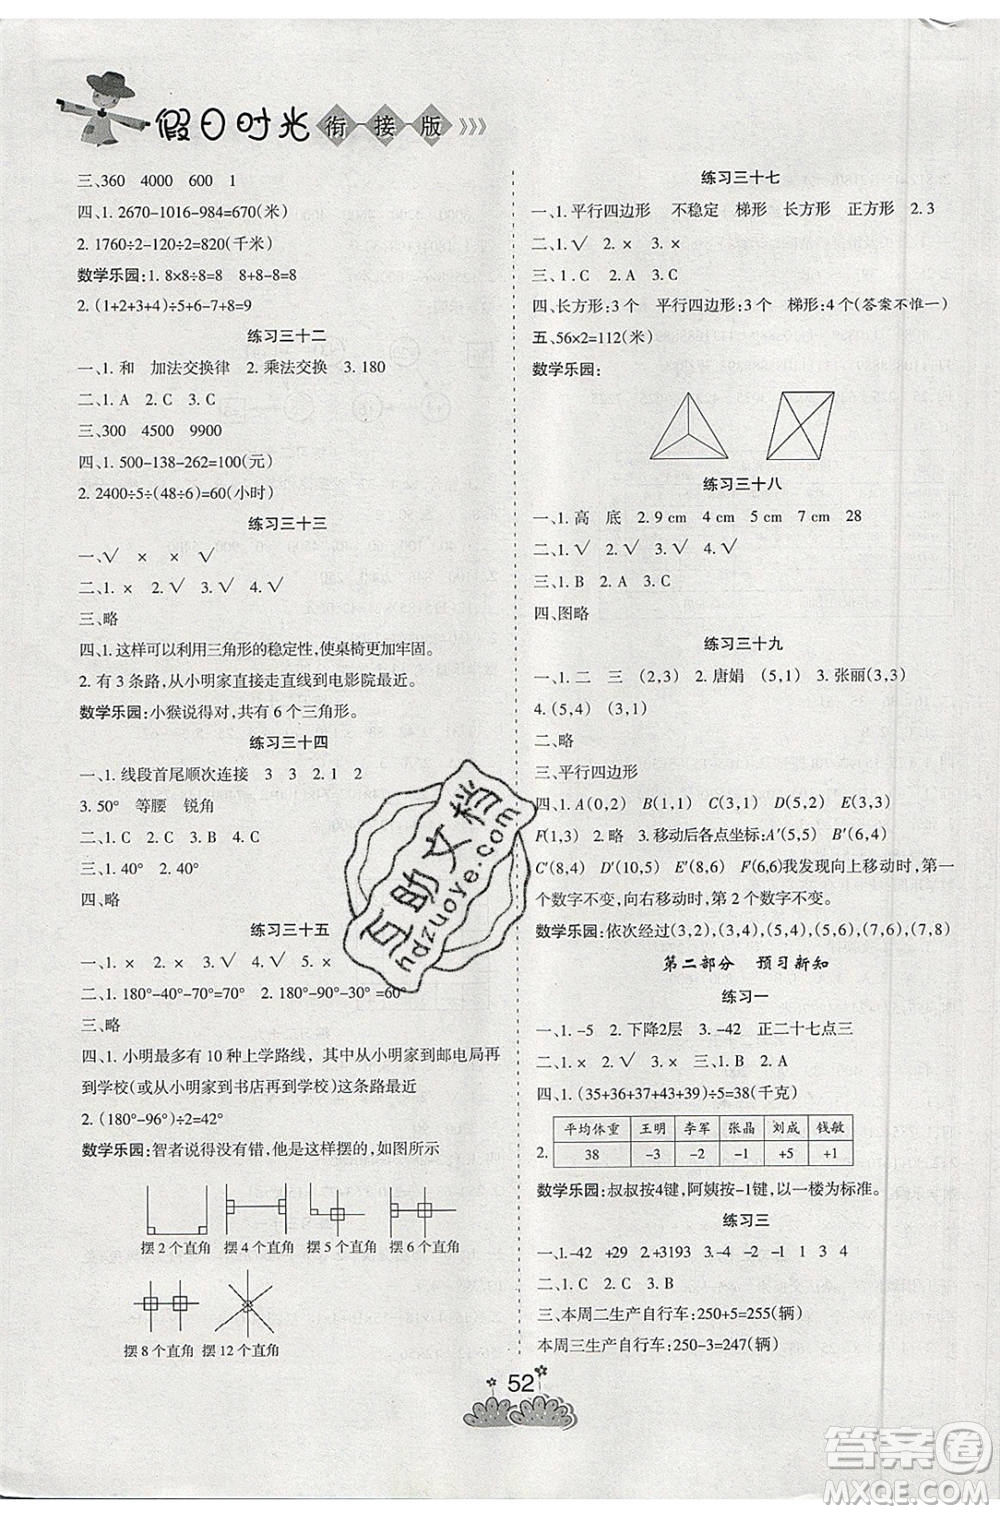 假日时光 衔接版 》》》
三、360 4000 600 1
四、1. 2670-1016-984=670(米)
2. 1760÷2-120÷2=820(千米)
数学乐园:1. 8×8÷8=8 8+8-8=8
2. (1+2+3+4)÷5+6-7+8=9
练习三十二
一、1. 和 加法交换律 2. 乘法交换 3. 180
二、1. A 2. C 3. C
三、300 4500 9900
四、1. 500-138-262=100(元)
2. 2400÷5÷(48÷6)=60(小时)
练习三十三
一、√ × × √
二、1. × 2. √ 3. √ 4. √
三、略
四、1. 这样可以利用三角形的稳定性,使桌椅更加牢固。
2. 有 3 条路,从小明家直接走直线到电影院最近。
数学乐园:小猴说得对,共有 6 个三角形。
练习三十四
一、1. 线段首尾顺次连接 3 3 2. 1 2
3. 50° 等腰 锐角
二、1. C 2. C 3. B 4. C
三、1. 70° 2. 40°
四、略
练习三十五
一、1. × 2. × 3. √ 4. √
二、1. 180°-40°-70°=70° 2. 180°-90°-30°=60°
三、略
四、1. 小明最多有 10 种上学路线, 其中从小明家到邮电局再
到学校(或从小明家到书店再到学校)这条路最近
2. (180°-96°)÷2=42°
数学乐园:智者说得没有错,他是这样摆的,如图所示
摆 2 个直角 摆 4 个直角 摆 5 个直角 摆 6 个直角
摆 8 个直角 摆 12 个直角
练习三十七
一、1. 平行四边形 不稳定 梯形 长方形 正方形 2. 3
二、1. √ 2. × 3. ×
三、1. C 2. A 3. C
四、长方形:3 个 平行四边形:2 个 梯形:2 个(答案不惟一)
五、56×2=112(米)
数学乐园:
练习三十八
一、1. 高 底 2. 9 cm 4 cm 5 cm 7 cm 28
二、1. √ 2. √ 3. √ 4. √
三、1. B 2. A 3. C
四、图略
练习三十九
一、1. 二 三 (3,4) 2. 唐娟 (5,1) 3. 张丽(3,3)
4. (5,4) (3,1)
二、略
三、平行四边形
四、1. A(0,2) B(1,4) C(3,4) D(5,2) E(3,3)
F(1,3) 2. 略 3. 移动后各点坐标:A′(5,5) B′(6,4)
C′(8,4) D′(10,5) E′(8,6) F′(6,6)我发现向上移动时,第一
个数字不变,向右移动时,第 2 个数字不变。
数学乐园:依次经过(3,2),(5,2),(5,5),(7,6),(7,8)
第二部分 预习新知
练习一
一、1. -5 2. 下降2层 3. -42 正二十七点三
二、1. × 2. √ 三、1. B 2. A
四、1. (35+36+37+43+39)÷5=38(千克)
2. 平均体重 王明 李军 张晶 刘成 钱敏
38 -3 -2 -1 +5 +1
数学乐园:叔叔按4键,阿姨按-1键,以一楼为标准。
练习三
一、1. -42 +29 2. +3193 3. -4 -2 -1 1 4
二、1. C 2. C 3. C 4. A
三、本周二生产自行车:250+5=255(辆)
本周三生产自行车:250-3=247(辆)
52
互助文档
hdzuoye.com
答案圈
MXQE.COM